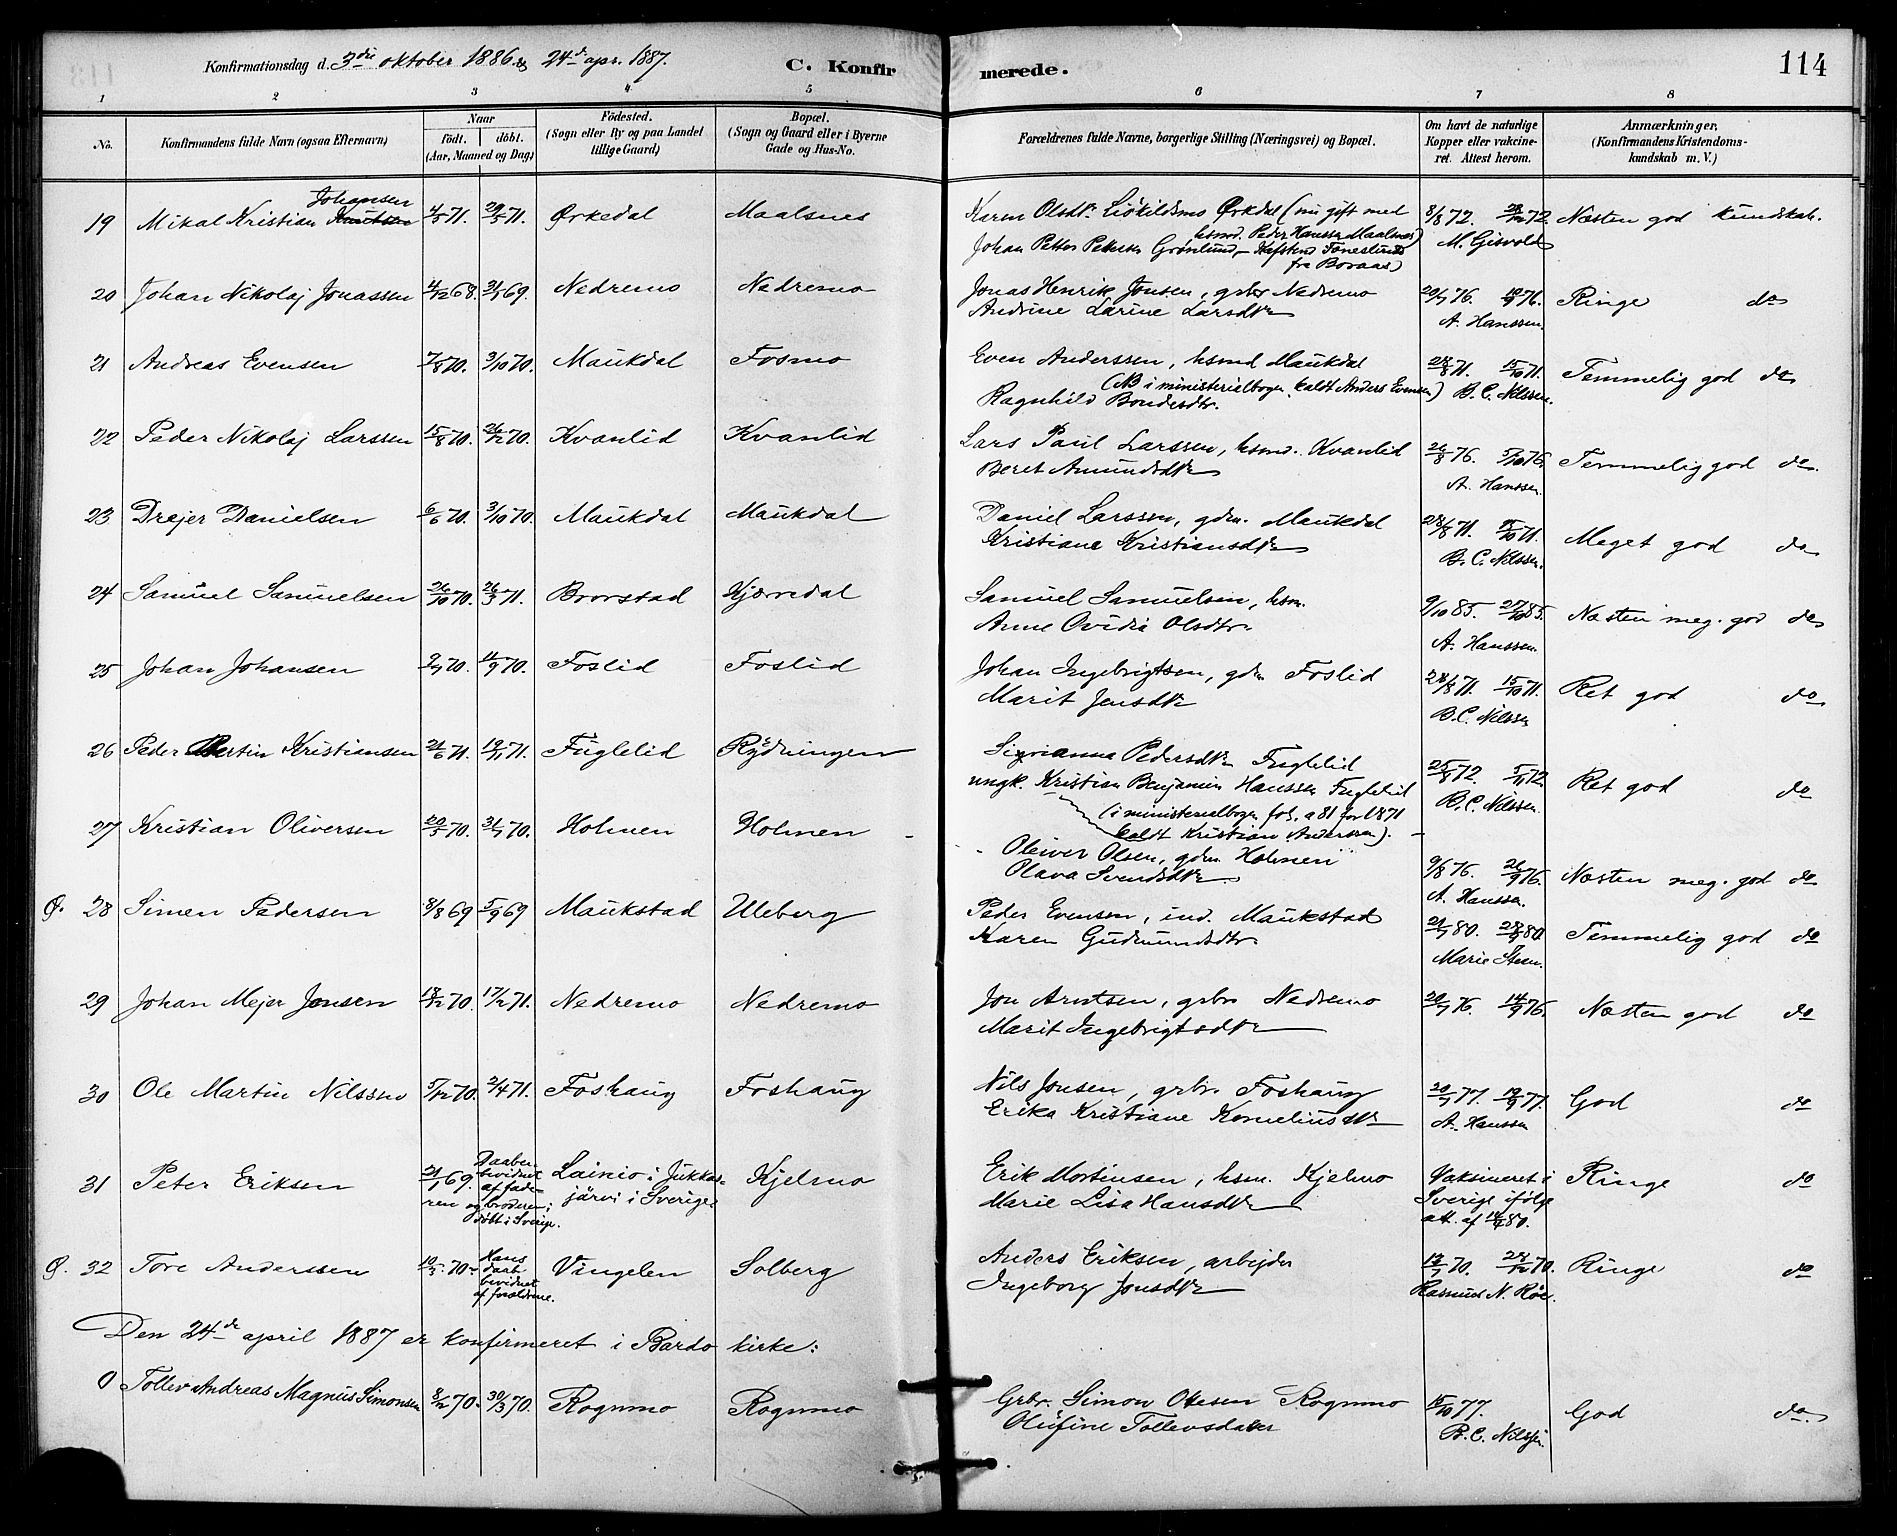 Konfirmationsdag d. 3die oktober 1886. og 24de apr. 1887.
C. Konfirmerede.
114
1 2 3 4 5 6 7 8
No. Konfirmandens fulde Navn (ogsaa Efternavn) Naar født. døbt. (Aar, Maaned og Dag) Fødested. (Sogn eller By og paa Landet tillige Gaard) Bopæl. (Sogn og Gaard eller i Byerne Gade og Hus-No. Forældrenes fulde Navne, borgerlige Stilling (Næringsvei) og Bopæl. Om havt de naturlige Kopper eller vakcineret. Attest herom. Anmærkninger. (Konfirmandens Kristendomskundskab m. V.)
19 Mikal Kristian Knutsen Johansen 4/3 71. 29/5 71. Ørkedal Maalsnes Karen Olsdtr. Ørkedal (nu gift med
hsmd. Peder Hansen Maalsnes)
Johan Petter Petersen Grønlund,
fra Boraas)
8/8 72. 28/10 72. M. Gisvold Næsten god kundskab.
20 Johan Nikolaj Jonassen 4/12 68. 31/1 69. Nedremo Nedremo Jonas Henrik Jonsen, grbr Nedremo
Andrine Larine Larsdtr
20/7 76. 19/9 76. A. Hanssen. Ringe do
21 Andreas Evensen 7/8 70. 3/10 70. Maukdal Fosmo Even Anderssen, hsmd Maukdal
(NB i ministerialbogen kaldt Anders Evensen)
Ragnhild Bondesdtr.
28/8 71. 15/10 71. B. C. Nilssen. Temmelig god do
22 Peder Nikolaj Larssen 15/8 70. 26/12 70. Kvanlid Kvanlid Lars Paul Larssen, hsmd. Kvanlid
Beret Amundsdtr
26/8 76. 5/10 76. A. Hanssen. Temmelig god do.
23 Drejer Danielsen 6/6 70. 3/10 70. Maukdal Maukdal Daniel Larssen, gdm. Maukdal
Kristiane Kristiansdtr
28/8 71. 15/10 71. B. C. Nilssen. Meget god do
24 Samuel Samuelsen 26/10 70. 26/3 71. Brorstad Kjærredal Samuel Samuelsen, hsm.
Anne Ovidia Olsdtr.
9/10 85. 27/10 85. A. Hanssen. Næsten meg. god do
25 Johan Johansen 9/7 70. 11/9 70. Foslid Foslid Johan Ingebrigtsen, gdm Foslid
Marit Jensdtr
28/8 71. 15/10 71. B.C. Nilssen Ret god do
26 Peder Bertin Kristiansen 21/6 71. 19/11 71. Fuglelid Rydningen Sirianna Pedersdtr Fuglelid
ungk. Kristian Benjamin Hanssen Fuglelid
(i ministerialbogen fol. a 81 for 1871
kaldt Kristian Anderssen).
25/8 72. 5/11 72. B.C. Nilssen. Ret god do
27 Kristian Oliversen 20/5 70. 31/7 70. Holmen Holmen Oliver Olsen, gdm. Holmen
Olava Svendsdtr.
9/8 76. 26/9 76. A. Hanssen. Næsten meg. god do
Ø. 28 Simen Pedersen 8/8 69 5/9 69 Maukstad Uleberg Peder Evensen, ind. Maukstad
Karen Gudmundsdtr.
21/7 80. 28/9 80. Marie Steen. Temmelig god do
29 Johan Mejer Jonsen 18/12 70. 17/2 71. Nedremo Nedremo Jon Arntsen, grbr Nedremo
Marit Ingebrigtsdtr
20/7 76. 14/9 76. Næsten god do
30 Ole Martin Nilssen 5/12 70. 2/4 71. Foshaug Foshaug Nils Jonsen, grbr. Foshaug
Erika Kristiane Korneliusdtr
20/7 77. 19/9 77. A. Hanssen God do
31 Peter Eriksen 21/1 69. Daaben bevidnet af faderen og broderen; døbt i Sverige. Lainio i Jukkasjärvi i Sverige Kjelmo Erik Mortinsen, hsm. Kjelmo
Marie Lisa Hansdtr
Vaksineret i Sverige ifølge att. af 80. Ringe do
Ø. 32 Tore Anderssen 10/3 70. Hans daab bevidnet af forældrene. Vingelen Solberg Anders Eriksen, arbejder
Ingeborg Jonsdtr
70. 70. Rasmus N. Røe. Ringe do
Den 24de april 1887 er konfirmeret i Bardo kirke:
0 Tollev Andreas Magnus Simonsen 8/2 70. 30/3 70. Rognmo Rognmo Grbr. Simon Olesen Rognmo
Olufine Tollevsdatter
15/10 77. B.C. Nilssen. God do.